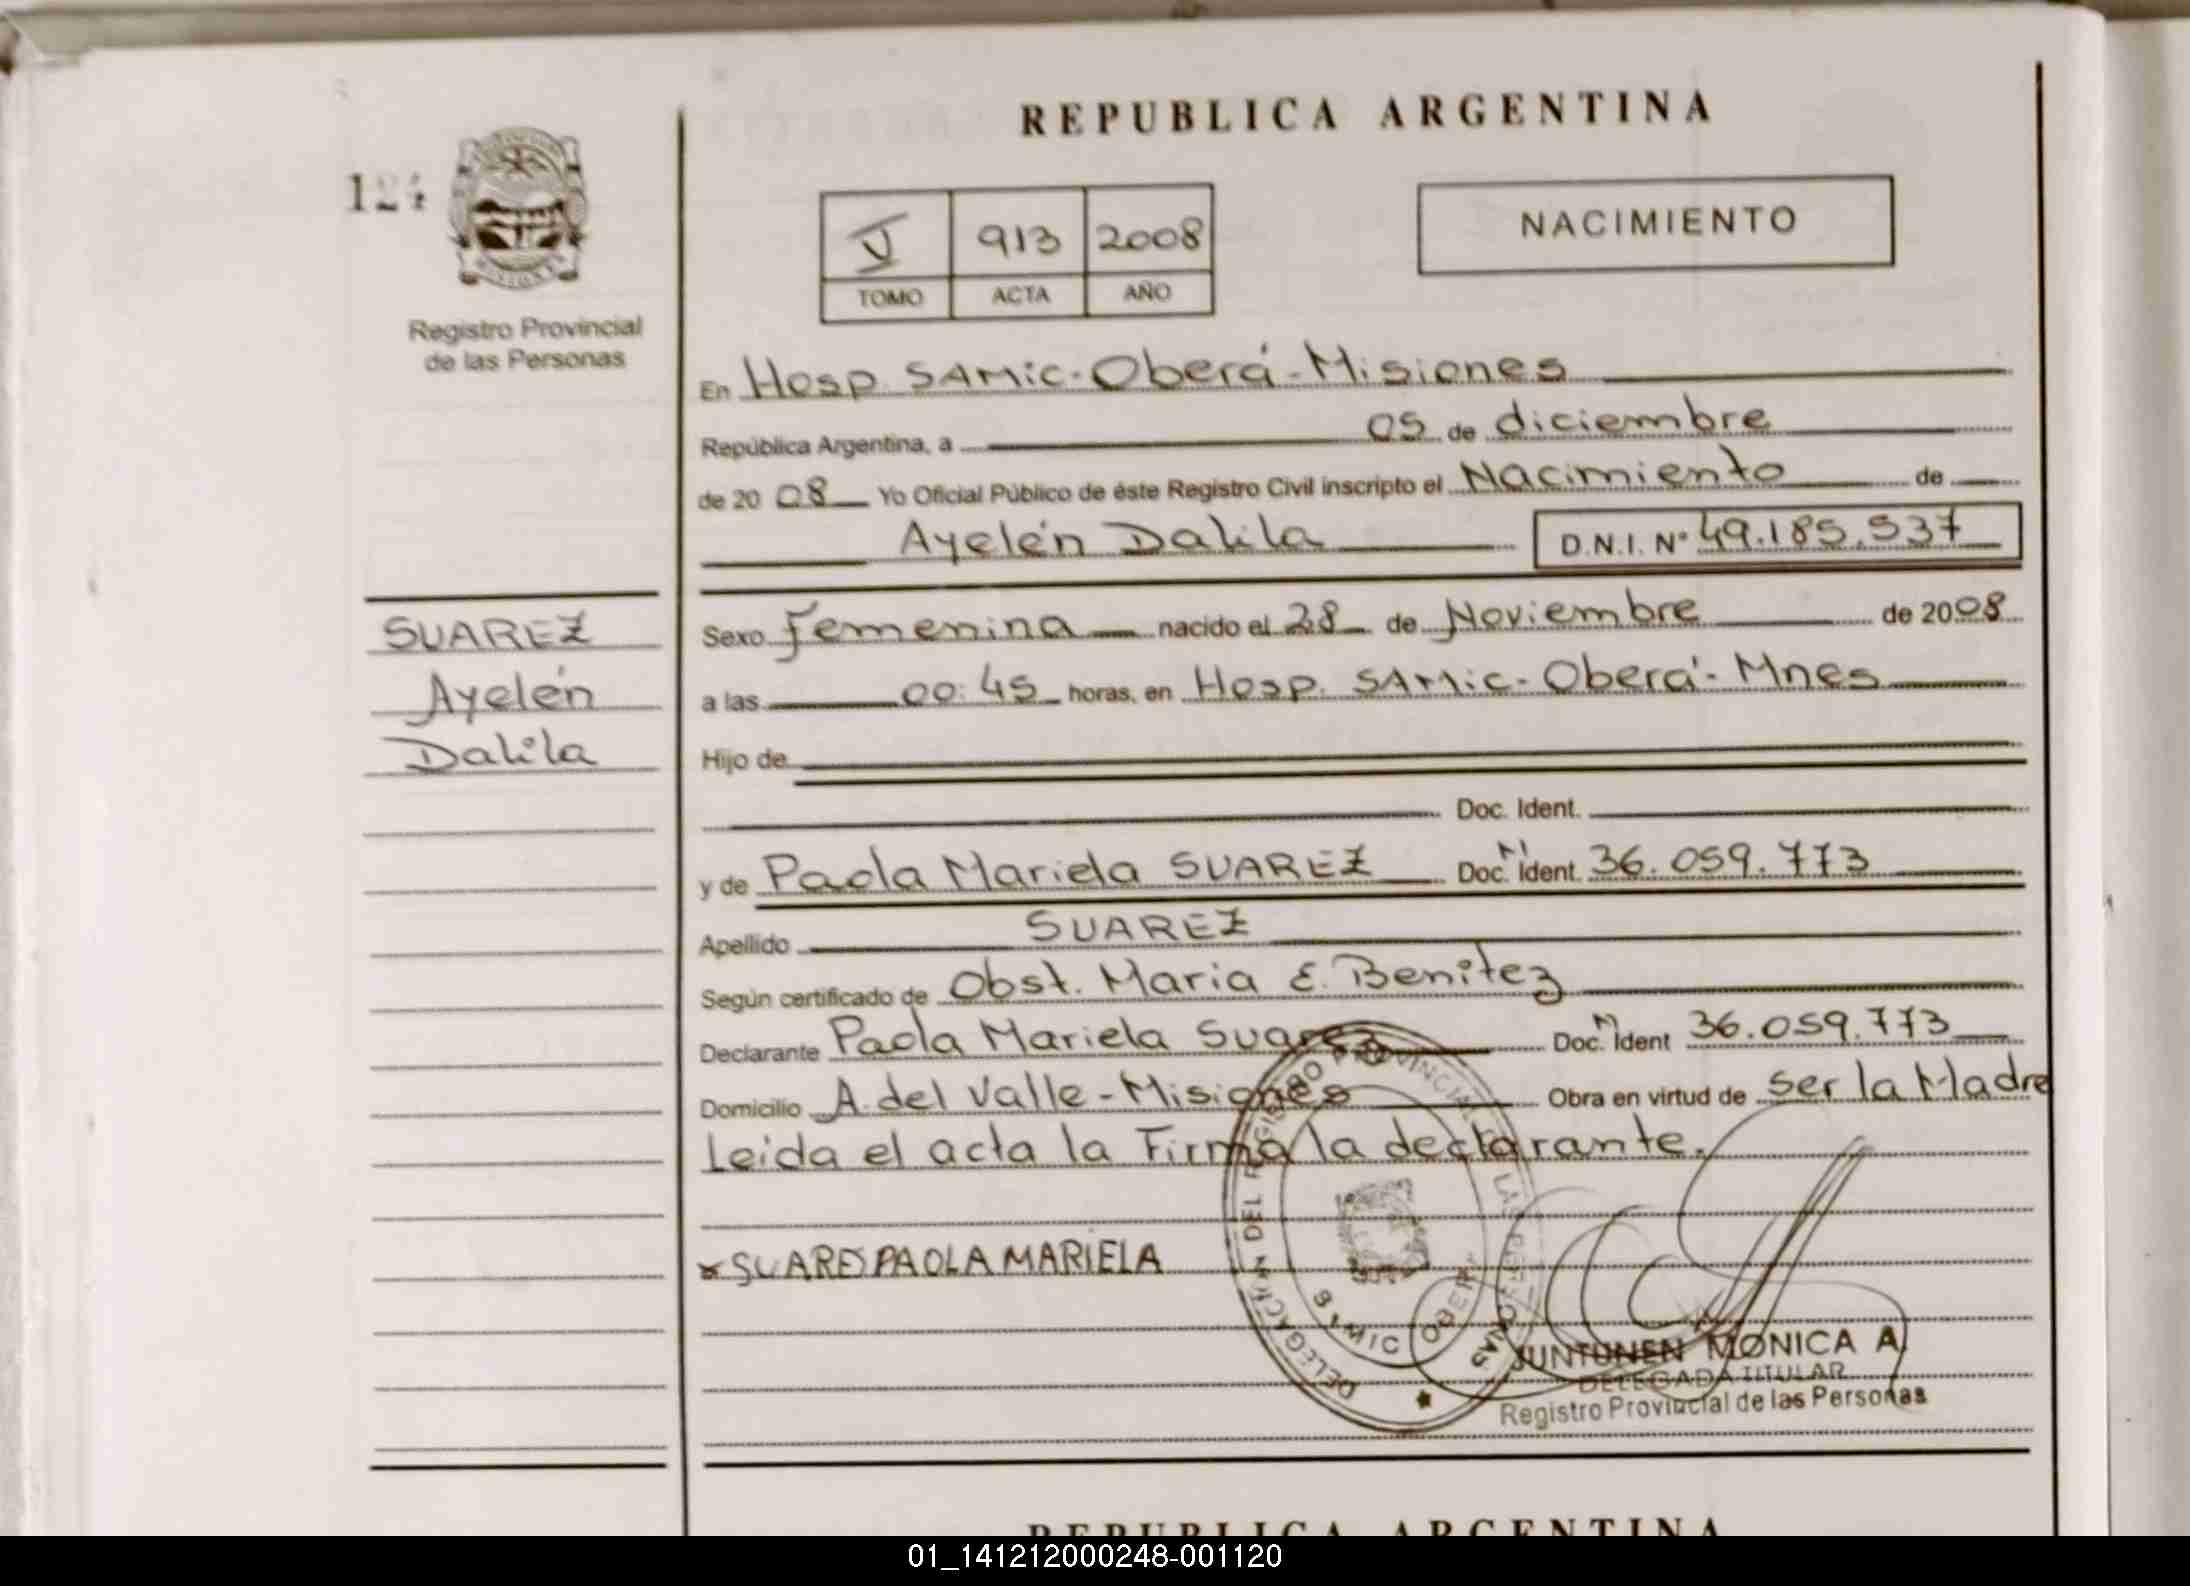 REPUBLICA ARGENTINA
NACIMIENTO
V 913 2008
TOMO ACTA AÑO
Registro Provincial
de las Personas
En Hosp. SAMic-Oberá-Misiones
República Argentina, a 05 de diciembre
de 20 08 Yo Oficial Público de éste Registro Civil inscripto el Nacimiento de
Ayelén Dalila D.N.I. Nº 49.185.537
SUAREZ
Ayelén
Dalila
Sexo Femenina nacido el 28 de Noviembre de 2008
a las 00:45 horas, en Hosp. SAMic-Oberá-Mnes
Hijo de
Doc. Ident.
y de Paola Mariela SUAREZ Doc. N. Ident. 36.059.773
Apellido SUAREZ
Según certificado de Obst. Maria E. Benitez
Declarante Paola Mariela Suarez Doc. N. Ident 36.059.773
Domicilio A. del Valle-Misiones Obra en virtud de Ser la Madre
Leida el acta la Firma la declarante.
SUARES PAOLA MARIELA
DELEGACION DEL REGISTRO PROVINCIAL LAS PERSONAS
SAMIC OBERA
JUNTUNEN MONICA A.
DELEGADA TITULAR
Registro Provincial de las Personas
REPUBLICA ARGENTINA
01_141212000248-001120